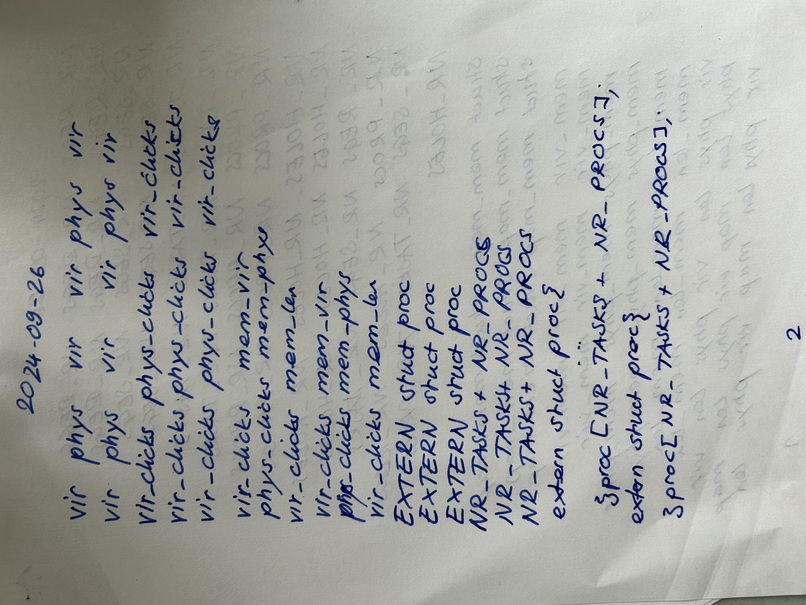 2024-09-26
vir phys vir vir phys vir
vir phys vir vir phys vir
vir_clicks phys_clicks vir_clicks
vir_clicks phys_clicks vir_clicks
vir_clicks phys_clicks vir_clicks
vir_clicks mem_vir
phys_clicks mem_phys
vir_clicks mem_len
vir_clicks mem_vir
phys_clicks mem_phys
vir_clicks mem_len
EXTERN stuct proc
EXTERN struct proc
EXTERN struct proc
NR_TASKS + NR_PROCS
NR_TASKS+ NR_PROCS
NR_TASKS+ NR_PROCS
extern struct proc{
...
}proc[NR_TASKS + NR_PROCS];
extern struct proc{
}proc[NR_TASKS + NR_PROCS];
2